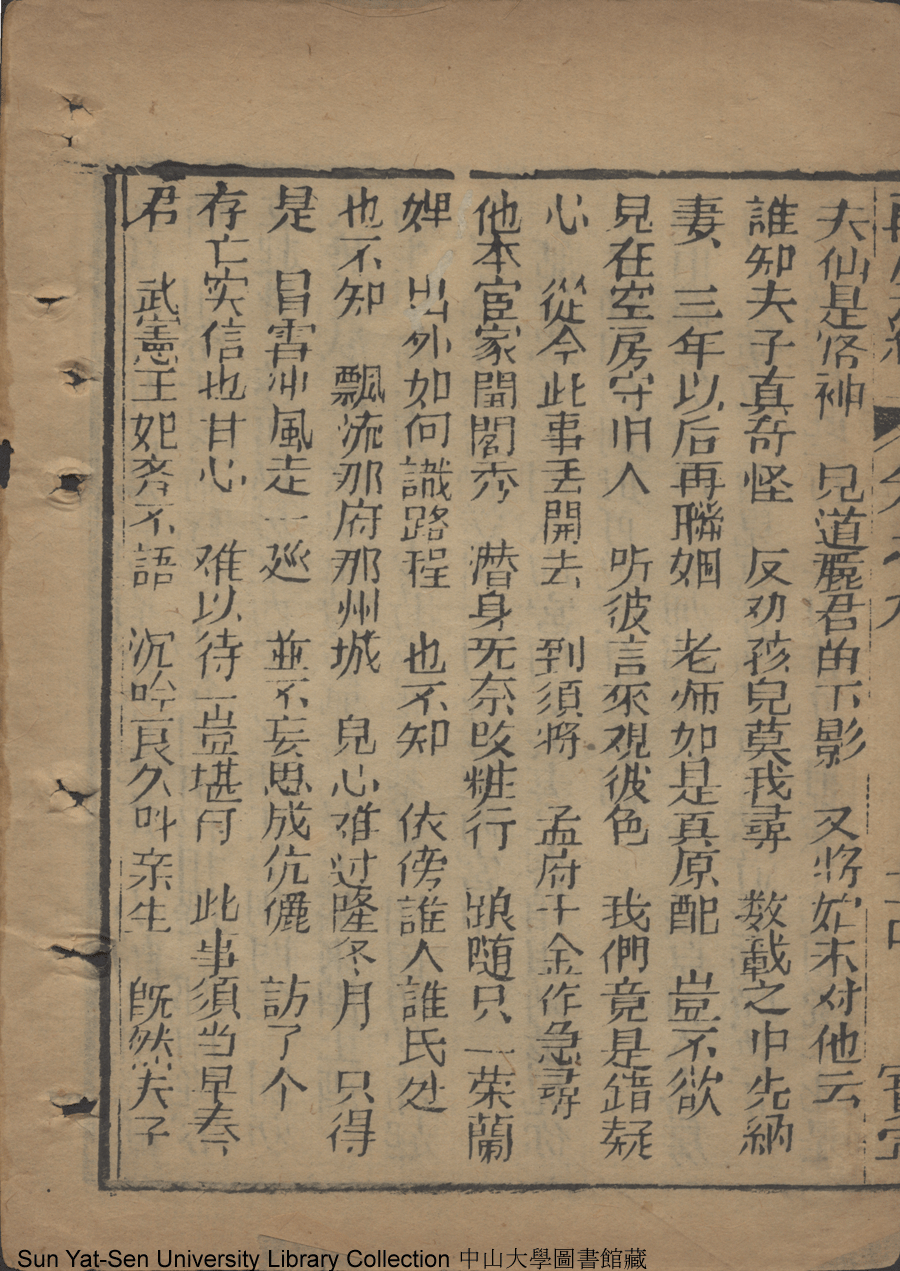 夫仙是洛神　見道麗君的下影　又將始末对他云
誰知夫子真奇怪　反劝孩兒莫我尋　数載之中先納
妻　三年以后再聯姻　老师如是真原配　豈不欲
見在空房守旧人　听彼言來覌彼色　我們竟是錯疑
心　從今此事丟開去　到須將　孟府千金作急尋
他本宦家閨閣秀　潜身无奈改粧行　跟随只一荣蘭
婢　出外如何識路程　也不知　依傍誰人誰氏处
也不知　飄流那府那州城　兒心难过隆冬月　只得
是　冒雪冲風走一廵　並不妄思成伉儷　訪了个
存亡实信也甘心　难以待　豈堪停　此事須当早奏
君　武憲王妃齐不語　沉吟良久叫亲生　旣然夫子
Sun Yat-Sen University Library Collection 中山大學圖書館藏